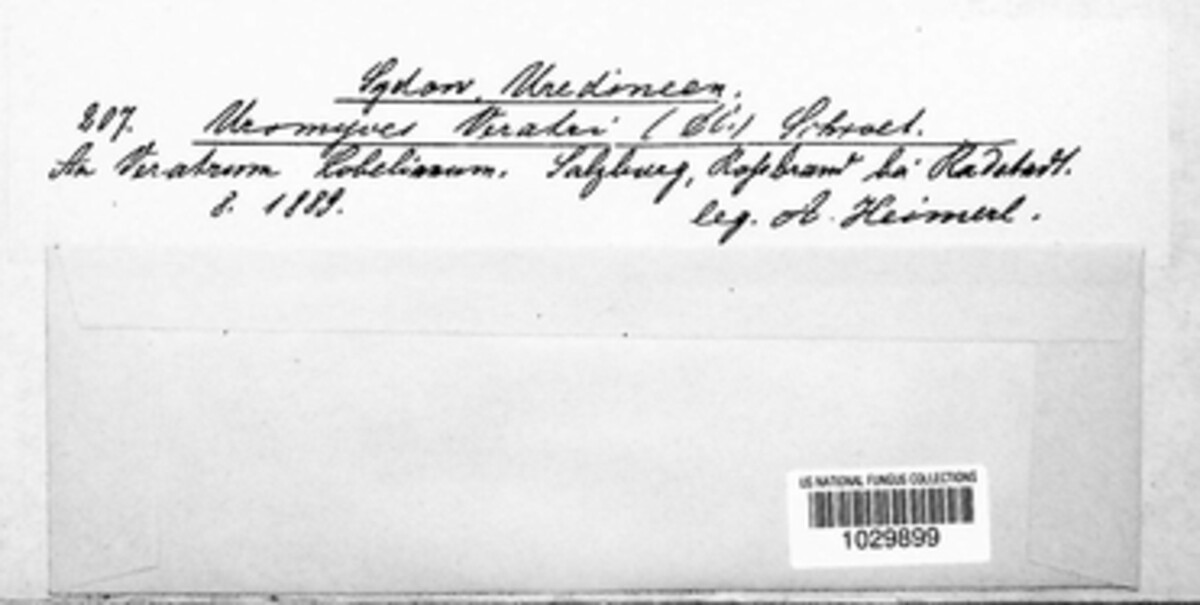 Sydow, Uredineen.
207. Uromyces Veratri (DC.) Schroet.
An Veratrum Lobelianum. Salzburg, Roßbrand bei Radstadt.
8. 1889. leg. A. Heimerl.
US NATIONAL FUNGUS COLLECTIONS
1029899